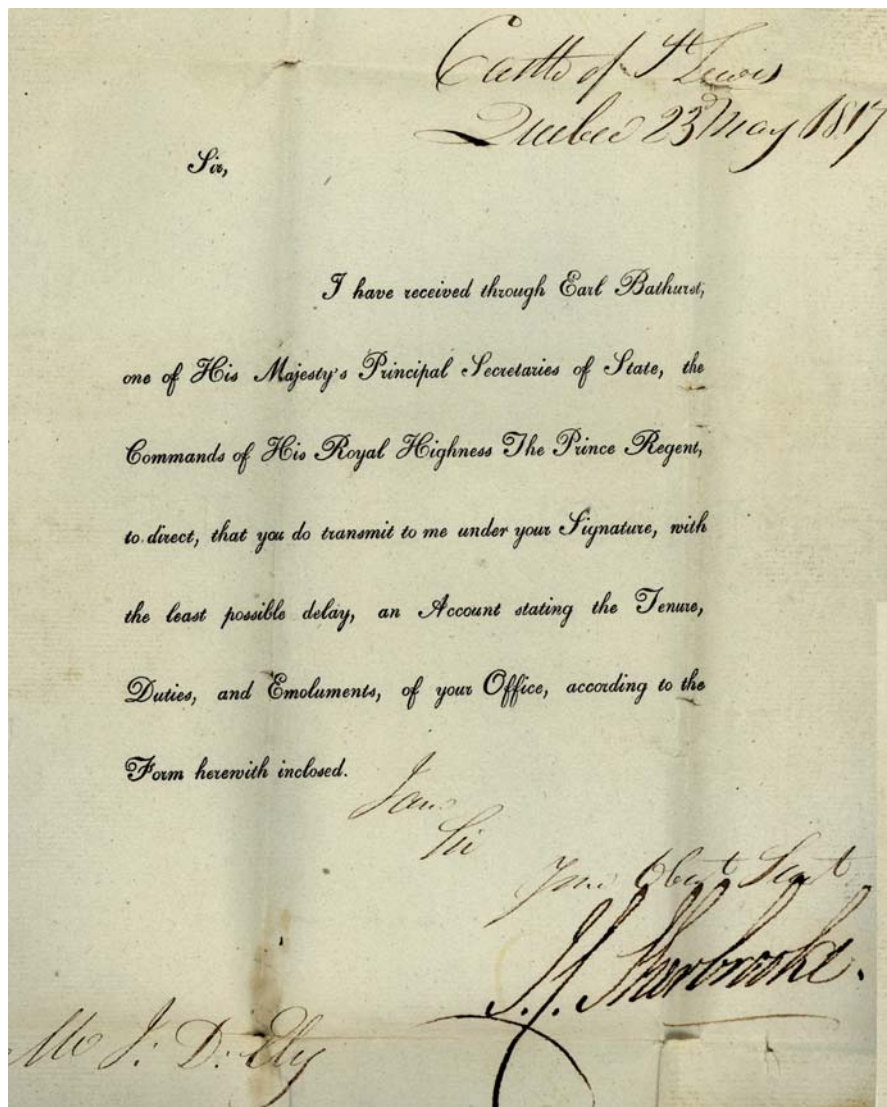 Castle of St Lewis
Quebec 23 May 1817
Sir,
I have received through Earl Bathurst,
one of His Majesty's Principal Secretaries of State, the
Commands of His Royal Highness The Prince Regent,
to direct, that you do transmit to me under your Signature, with
the least possible delay, an Account stating the Tenure,
Duties, and Emoluments, of your Office, according to the
Form herewith inclosed.
I am
Sir
Your Obedt Servt
J. C. Sherbrooke.
Mr J: D: